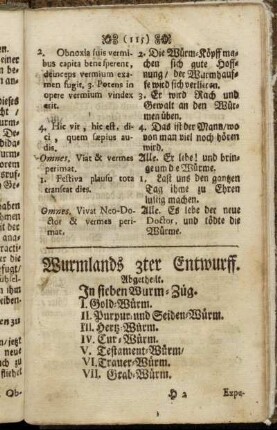 (115)
2. Obnoxia suis vermi-
bus capita bene sperent,
deinceps vermium exa-
men fugit, 3. Potens in
opere vermium vindex
erit.
4. Hic vir, hic est, di-
ci quem sæpius au-
dis,
Omnes, Viat & vermes
perimat.
1. Festiva plausu tota
transeat dies.
Omnes, Vivat Neo-Do-
ctor & vermes peri-
mat.
2. Die Würm-Köpff ma-
chen sich gute Hoff-
nung/ der Wurmhauf-
fe wird sich verlieren.
3. Er wird Rach und
Gewalt an den Wür-
men üben.
4. Das ist der Mann/wo
von man viel noch hören
wird.
Alle. Er lebe! und brin-
ge um die Würme.
1. Last uns den gantzen
Tag ihme zu Ehren
lustig machen.
Alle. Es lebe der neue
Doctor, und tödte die
Würme.
Wurmlands 3ter Entwurff.
Abgetheilt.
In sieben Wurm-Züg.
I. Gold-Würm.
II. Purpur und Seiden-Würm.
III. Hertz-Würm.
IV. Cur-Würm.
V. Testament-Würm/
VI. Trauer-Würm/
VII. Grab-Würm.
Expe-